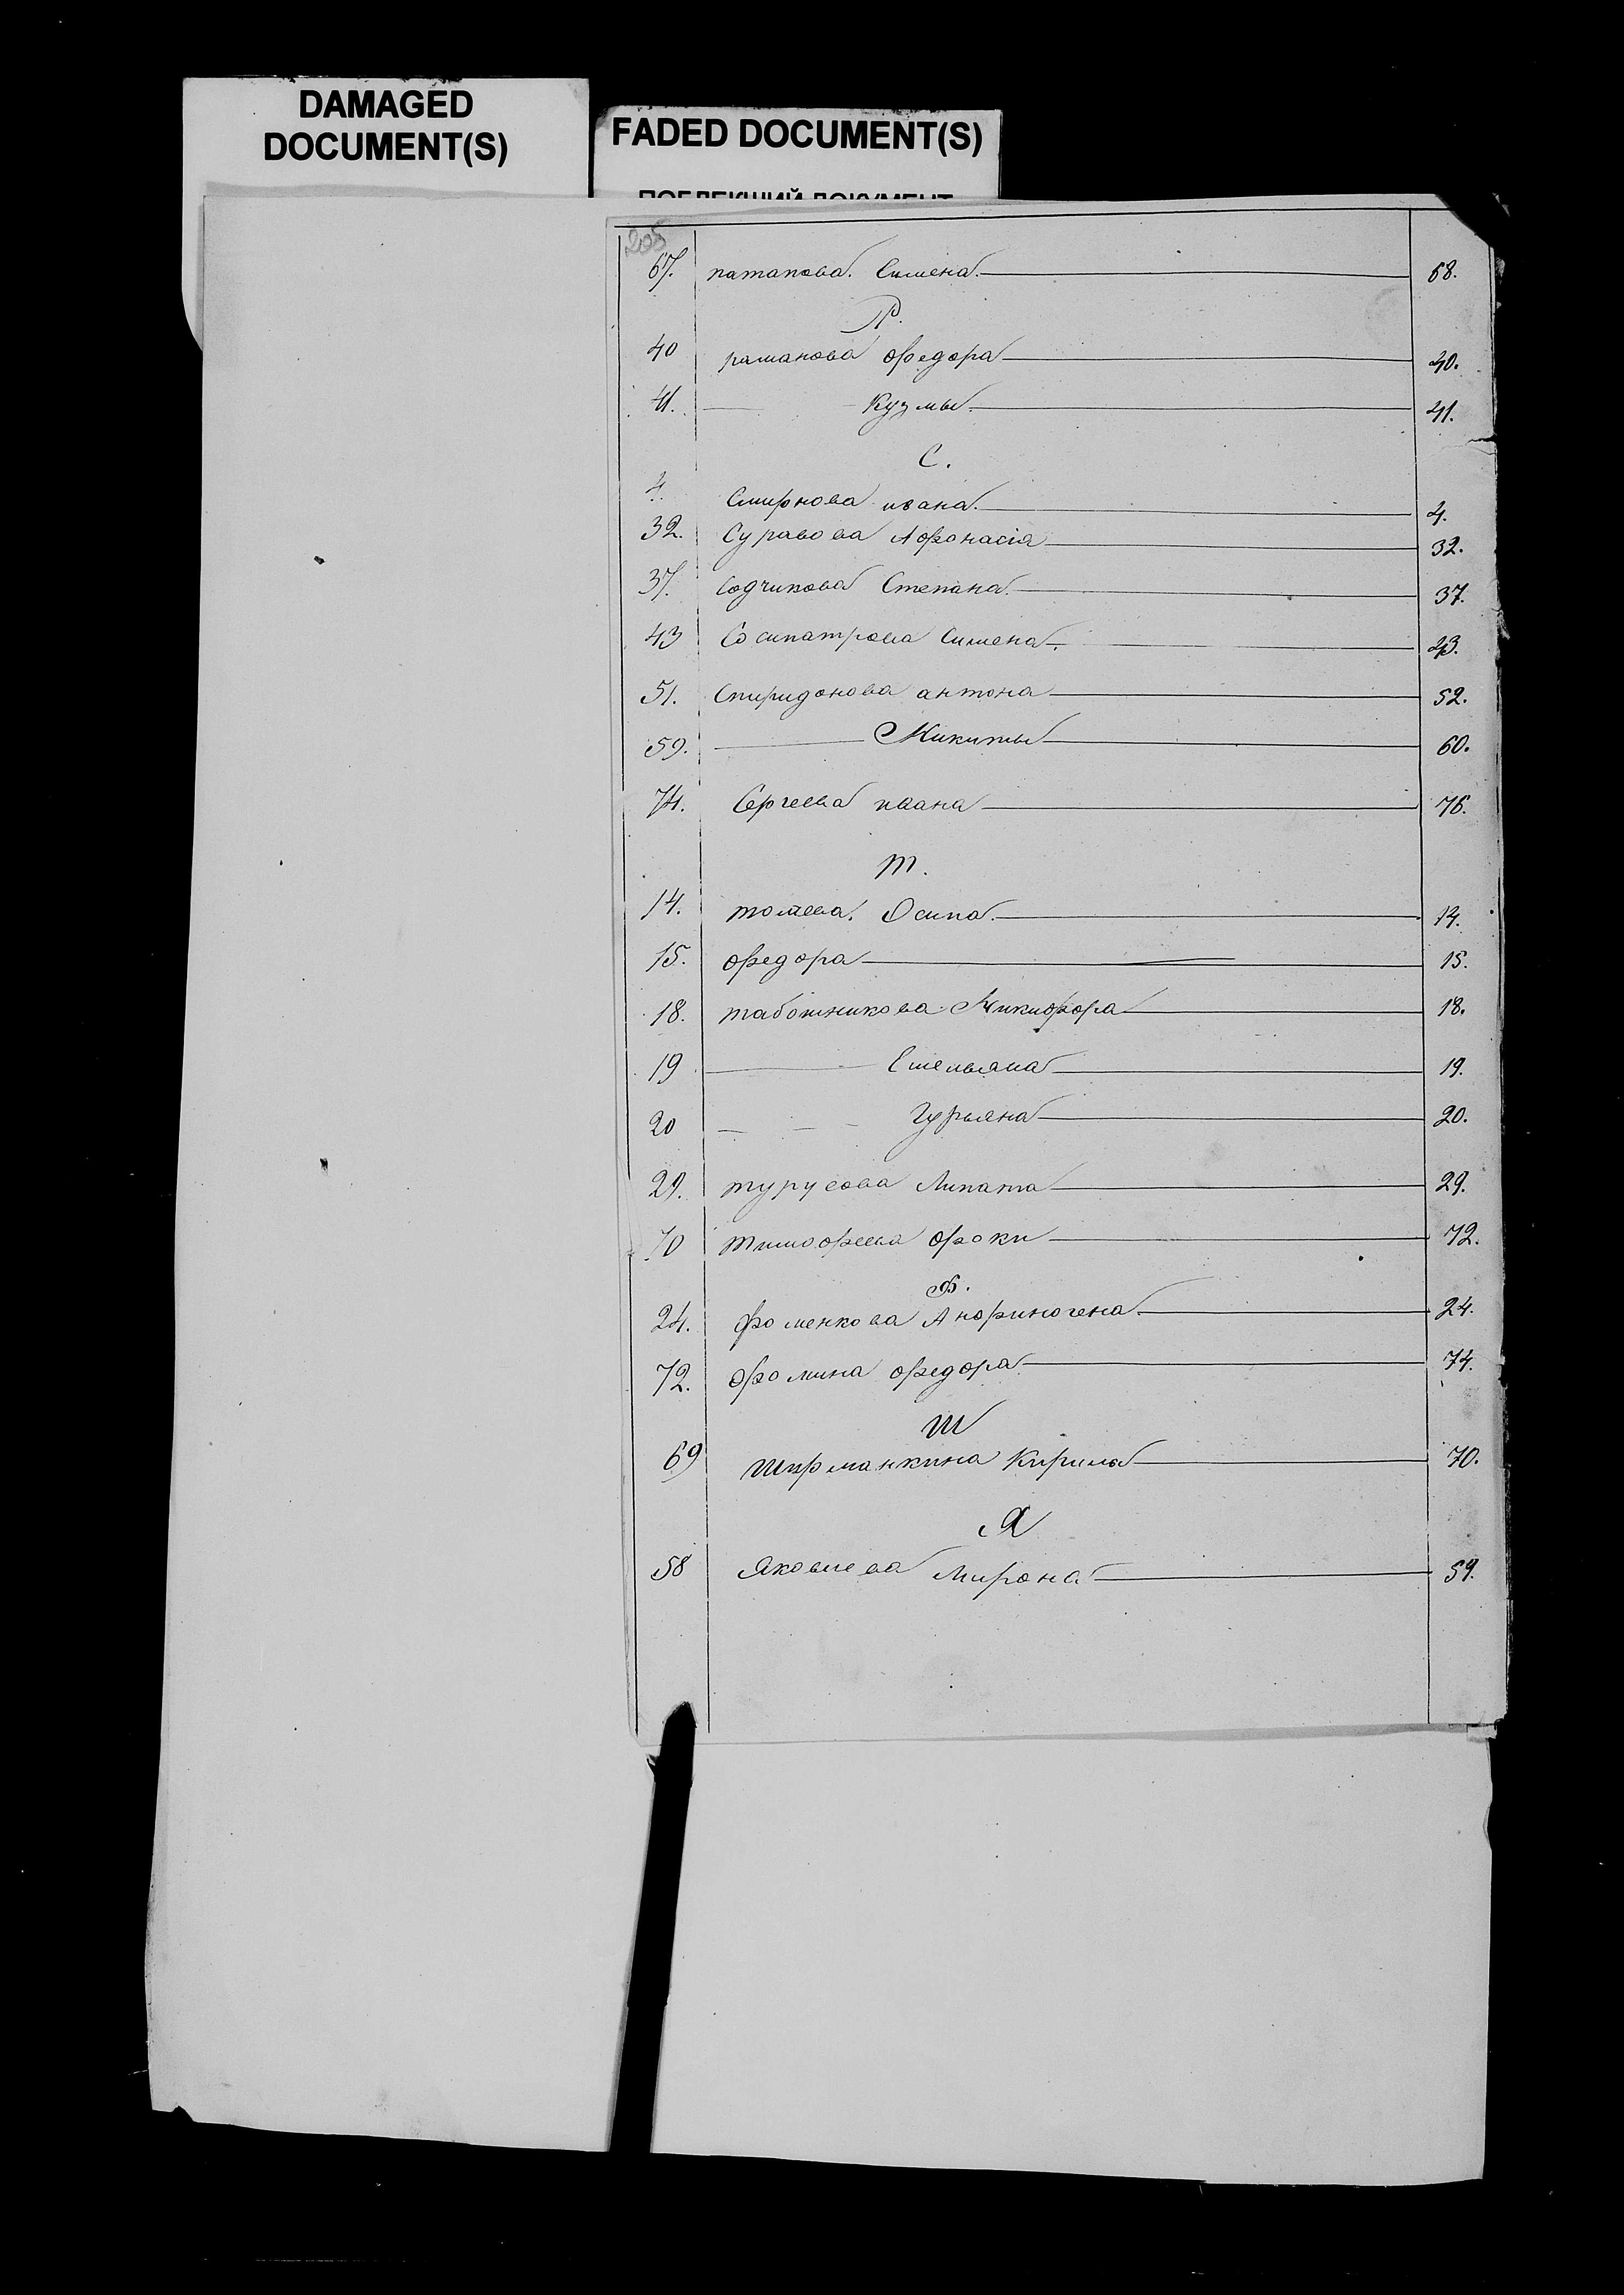 DAMAGED
DOCUMENT(S)
FADED DOCUMENT(S)
ПОБЛЕКШИЙ ДОКУМЕНТ
205
67. патапова. Симена. 68.
Р.
40 раманова Федора 40.
41. Кузмы. 41.
С.
4. Смирнова ивана. 4.
32. Суравова Афонасія 32.
37. Содчикова Степана. 37.
43 Сосипатрова Симена. 43.
51. Спиридонова антона 52.
59. Никиты 60.
74. Сергеева ивана 76.
Т.
14. Осипа. 14.
15. федора 15.
18. Никифора 18.
19 Емельяна 19.
20 Гурьяна 20.
29. турусова Липата 29.
70 тимофеева фоки 72.
Ф.
24. фоменкова Анфиногена. 24.
72. фомина федора 74.
Ш
69 Ширманкина Кирила 70.
Я
58 Яковлева Мирона 59.